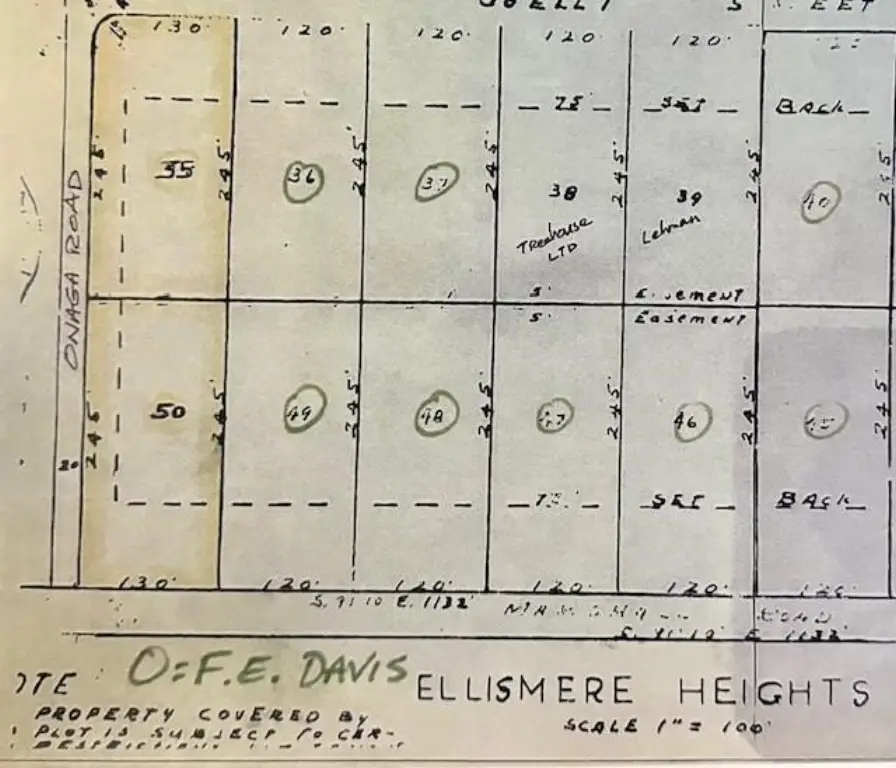 130' 120' 120' 120' 120'
75' SET BACK
245' 245' 245' 245' 245' 245' 245'
35 36 37 38 39 40
Treehouse LTD Lehman
ONAGA ROAD
5' 
5' Easement
245' 245' 245' 245' 245' 245' 245'
50 49 48 47 46
20
75' SET BACK
130' 120' 120' 120' 120' 120'
S. 71 10 E. 1132'
O=F.E. DAVIS
ELLISMERE HEIGHTS
SCALE 1" = 100'
PROPERTY COVERED By
PLOT IS SUBJECT TO CER-